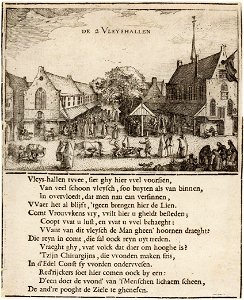 DE 2 VLEYSHALLEN
Vleys-hallen twee, siet ghy hier wel voorsien,
Van veel schoon vleysch, soo buyten als van binnen,
In overvloedt, dat men nau can versinnen,
VVaer het al blijft, 'tgeen brengen hier de Lien.
Comt Vrouvvkens vry, vvilt hier u gheldt besteden;
Coopt vvat u lust, en vvat u vvel behaeght:
VVant van dit vleysch de Man gheen' hoornen draeght:
Die reyn in comt, die sal oock reyn uyt treden.
Vraeght ghy, vvat volck dat daer om hooghe is?
'Tzijn Chirurgijns, die vvonden maken fris,
In d'Edel Const sy vvorden ondervvesen.
Red'rijckers siet hier comen oock by een:
D'een doet de vvond' van 'tMenschen lichaem scheen,
De and're pooght de Ziele te ghenesen.